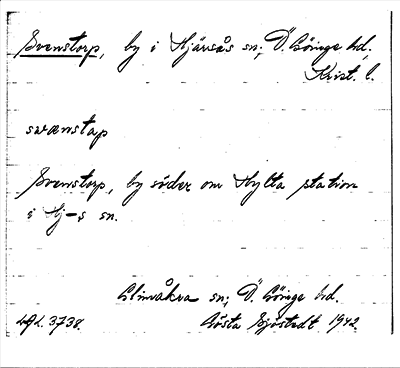 Svenstorp, by i Hjärsås sn; Ö. Göinge hd,
Krist. l.
svænstap
Svenstorp, by söder om Hylta station
i Hj-s sn.
Glimåkra sn; Ö. Göinge hd.
LAL. 3738. Gösta Sjöstedt 1942.